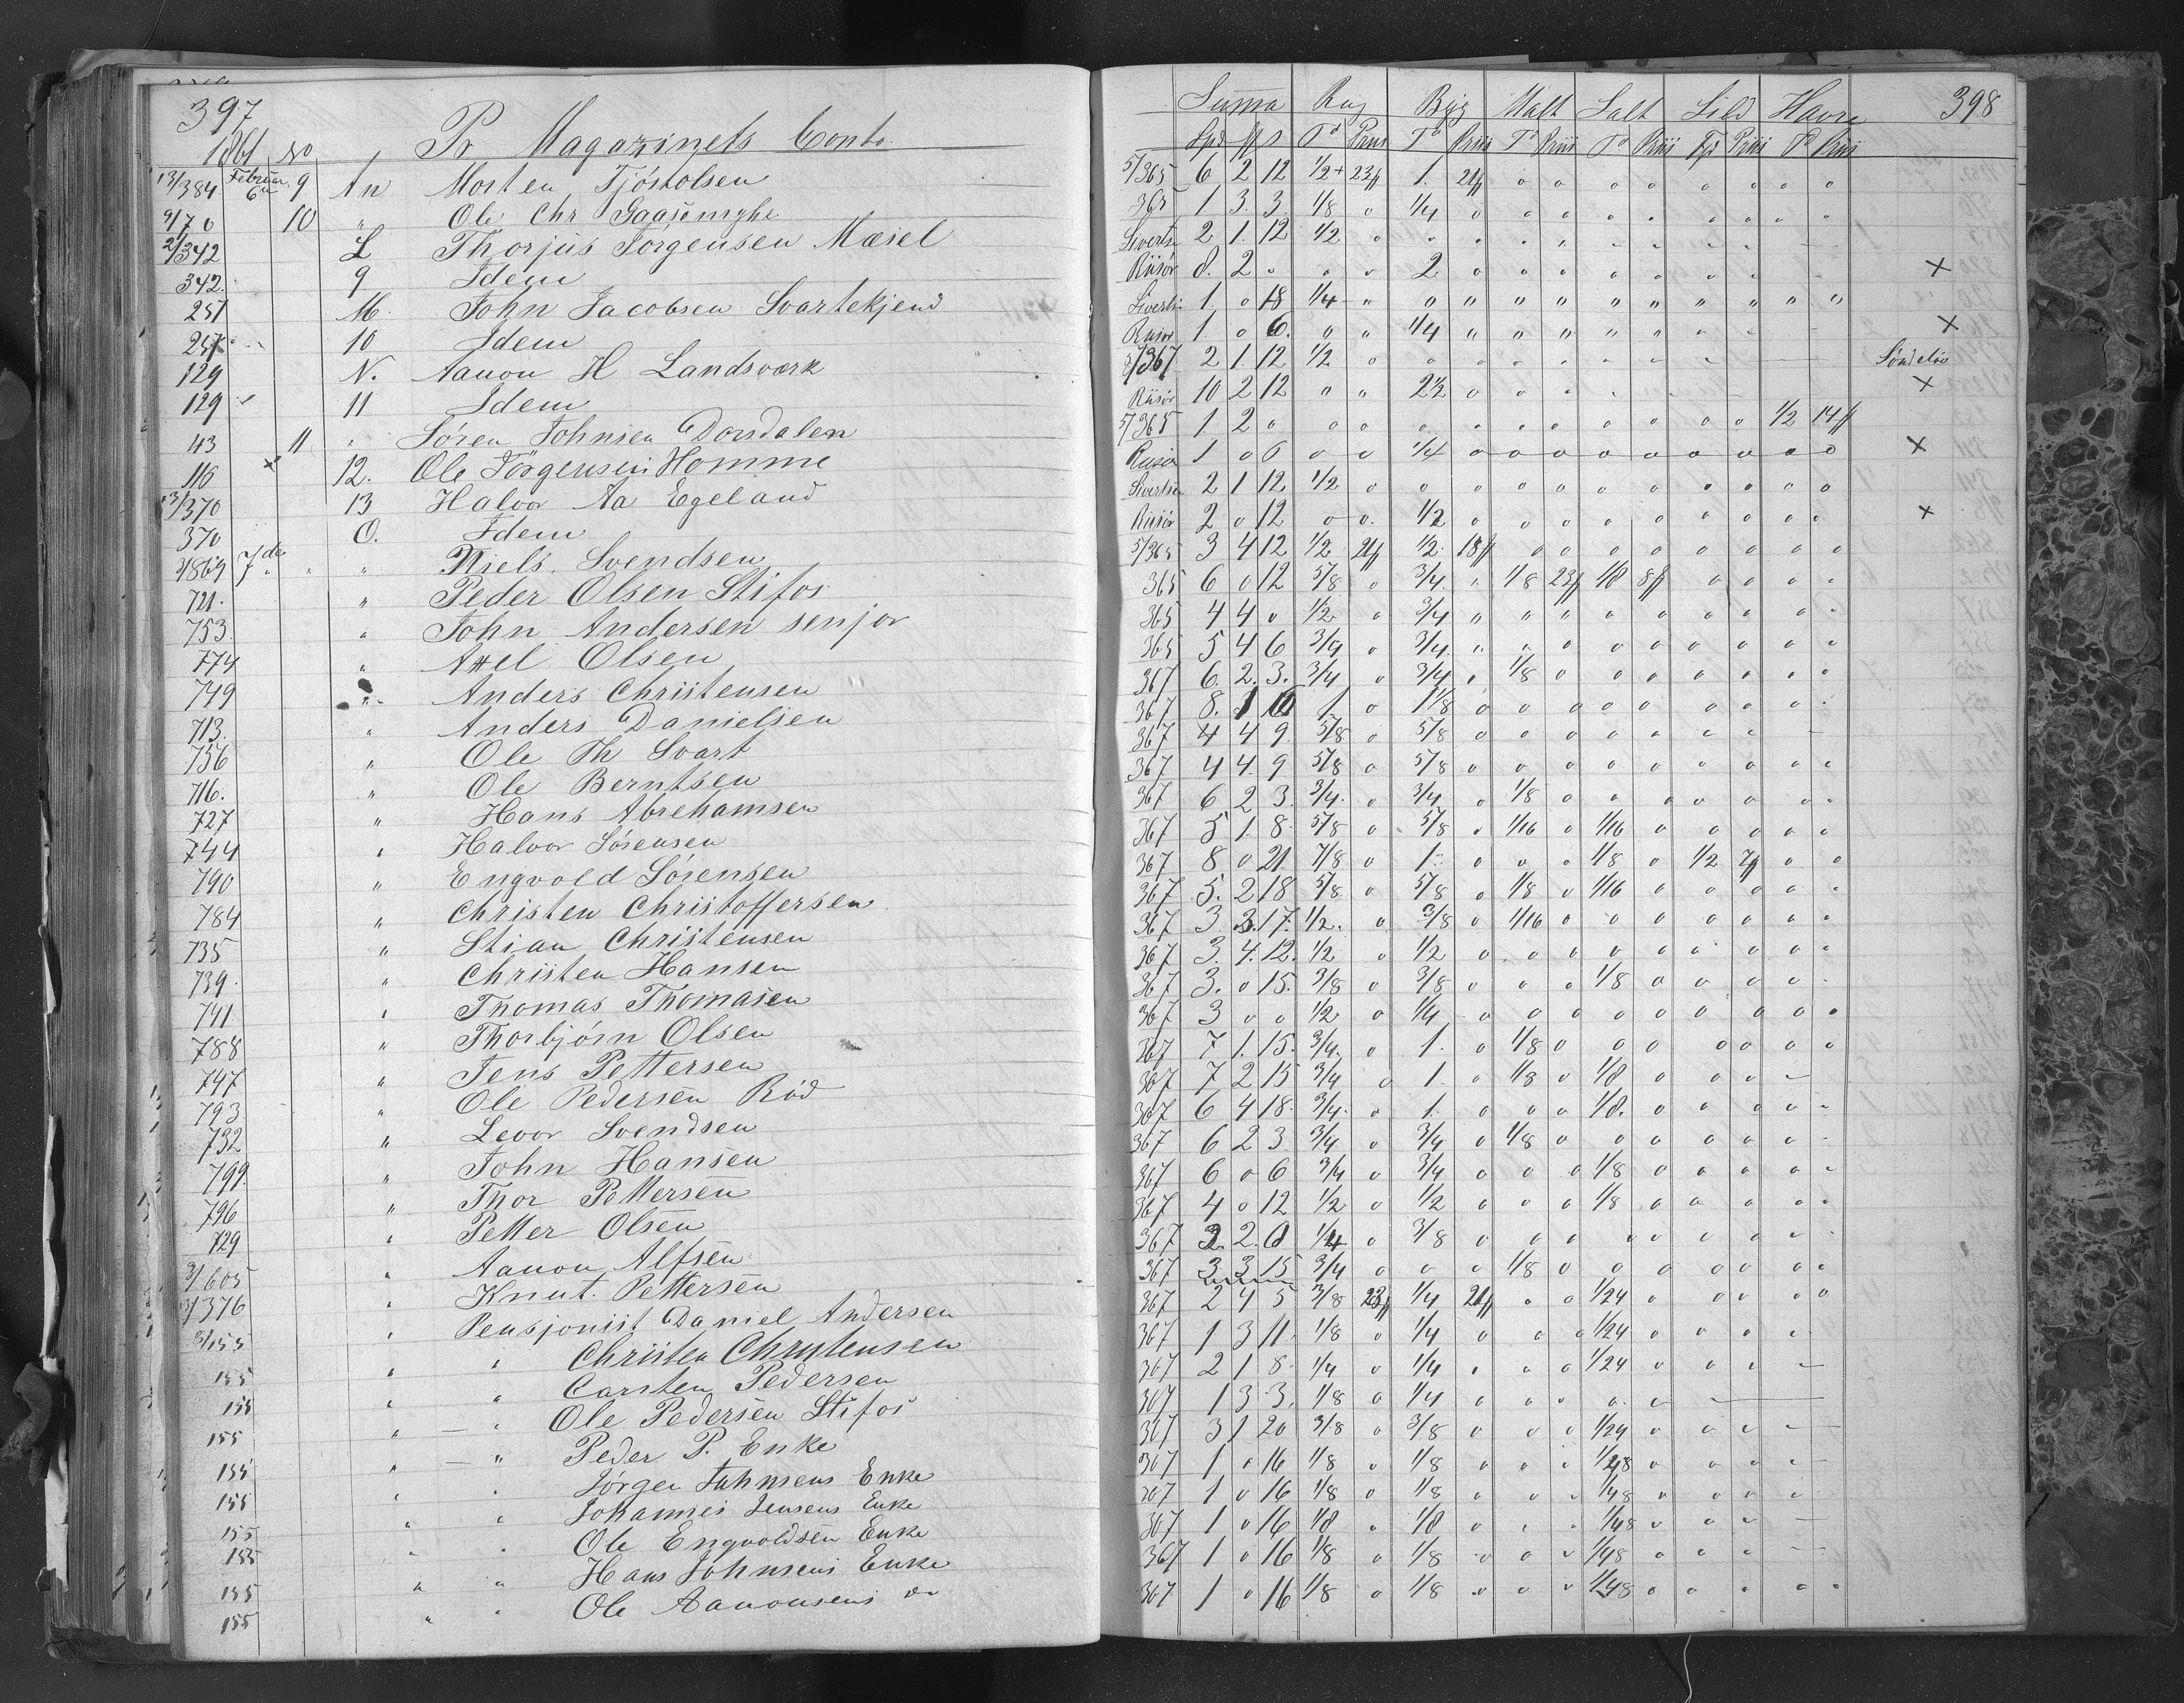 397
Pr Magazinets Conto.
1861 No
13/384 Februar 6te 9 An Morten Tjöstolsen
9/70 10 " Ole Chr Gaasmyhr
2/342 L Thorjus Jörgensen Mæsel
342. 9 Idem
251 M. John Jacobsen Svartekjend
251 10 Idem
129 N. Aanon H Landsværk
129 11 Idem
43 11 " Sören Johnsen Dorsdalen
116 x 12. Ole Jörgensen Homme
13/370 13 Halvor Aa Egeland
370 O. Idem
2/869 7de " " Niels Svendsen
721. " Peder Olsen Stifos
753. " John Andersen senjor
774 " Axel Olsen
749 " Anders Christensen
713. " Anders Danielsen
756 " Ole Th Svart
716. " Ole Berntsen
727 " Hans Abrehamsen
744 " Halvor Sörensen
790 " Engvold Sörensen
784 " Christen Christoffersen
735 " Stian Christensen
739. " Christen Hansen
741 " Thomas Thomasen
788 " Thorbjörn Olsen
747 " Jens Pettersen
793 " Ole Pedersen Röd
732 " Levor Svendsen
799. " John Hansen
796 " Thor Pettersen
729 " Petter Olsen
3/605 " Aanon Alfsen
13/376 " Knut Pettersen
3/155 " Pensjonist Daniel Andersen
155 " " Christen Christensen
155 " " Carsten Pedersen
155 " — " Ole Pedersen Stifos
155 " — " Peder P. Enke
155 " " Jörgen Johnsens Enke
155 " " Johannes Jensens Enke
155 " " Ole Engvoldsen Enke
155 " " Hans Johnsens Enke
155 " " Ole Aanonsens do
398
Summa Rug Byg Malt Salt Sild Havre
Spd # s Td Priis Td Priis Td Priis Td Priis Td Priis Td Priis
5/365 6 2 12 1/2+ 23# 1. 21# o o o o o o o o
365 1 3 3 1/8 o 1/4 o o o o o o o o o
Sivertsn 2 1. 12 1/2 o
Riisör 8. 2 o o o 2 o o o o o o o x
Sivertsn 1. o 18 1/4 " o " " " " " " " " "
Riisör 1 o 6. " " 1/4 " " " " " x
3/367 2 1 12 1/2 o Söndelöv
Riisör 10 2 12 " " 2 1/2 o o o x
5/365 1 2 o o o o o o o o o o o 1/2 14#
Riisör 1 o 6 o o 1/4 o o o o o o o o o x
Sivertsen 2 1 12 1/2 o o o o o o o o o o o
Riisör 2 o 12 o o. 1/2 o o o o o o o o o x
5/365 3 4 12 1/2 21# 1/2. 18# o o o o o o o o
365 6 o 12 5/8 o 3/4. " 1/8 23# 1/8 8# o o o o
365 4 4 o 1/2 o 3/4 " " " o o o o o o
365 5 4 6 3/4 o 3/4. " o o o o o o o o
367 6. 2. 3. 3/4 o 3/4 o 1/8 o o o o o o o
367 8. 1 6 1 o 1 1/8 o o o o o o o o
367 4 4 9. 5/8 o 5/8 o o o o o o o
367 4 4. 9 5/8 o 5/8 o o o o o o o o o
367 6 2 3. 3/4. o 3/4 o 1/8 o o o o o o o
367 5 1. 8. 5/8 o 5/8 o 1/16 o 1/16 o o o o o
367 8 o 21. 7/8 o 1. o o o 1/8 o 1/2 7# o o
367 5. 2 18 5/8 o 5/8 o 1/8 o 1/16 o o o o o
367 3. 3. 17. 1/2. o 3/8 o 1/16 o o o o o o o
367 3. 4. 12. 1/2 o 1/2 o o o o o o o o o
367 3. o 15. 3/8 o 3/8 o o o 1/8 o o o o
367 3 o o 1/2 o 1/4 o o o o o o o o o
367 7 1. 15. 3/4. o 1. o 1/8 o o o o o o o
367 7 2 15 3/4 o 1. o 1/8 o 1/8 o o o
367 6 4 18. 3/4. o 1. o o o 1/8. o o o o
367 6 2 3 3/4 o 3/4 o 1/8 o o o o o o
367 6 o 6 3/4 o 3/4 o o o 1/8 o o o o
367 4 o 12 1/2 o 1/2 o o o 1/8 o o o o o
367 2. 2. o 1/4 o 3/8 o o o o o o o o
367 3 3 15 3/4 o o o 1/8 o o o o o o o
367 2 4 5 3/8 23# 1/4 21# o o 1/24 o o o o o
367 1 3 11. 1/8 o 1/4 o o o 1/24 o o o o
367 2 1 8. 1/4 o 1/4 o o o 1/24 o o o
367 1 3 3. 1/8 o 1/4 o o o o o
367 3 1 20 3/8 o 3/8 o o o 1/24 o o o
367 1 o 16 1/8 o 1/8 o o o 1/48 o o o
367 1 o 16 1/8 o 1/8 o o o 1/48 o o o
367 1 o 16 1/8 o 1/8 o o o 1/48 o o o
367 1 o 16 1/8 o 1/8 o o o 1/48 o o o
367 1 o 16 1/8 o 1/8 o o o 1/48 o o o o o